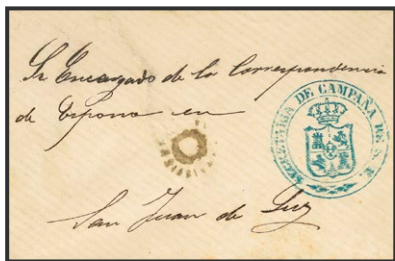 Sr Encargado de la Correspondencia
de España en
San Juan de Luz
SECRETARÍA DE CAMPAÑA DE S. M.